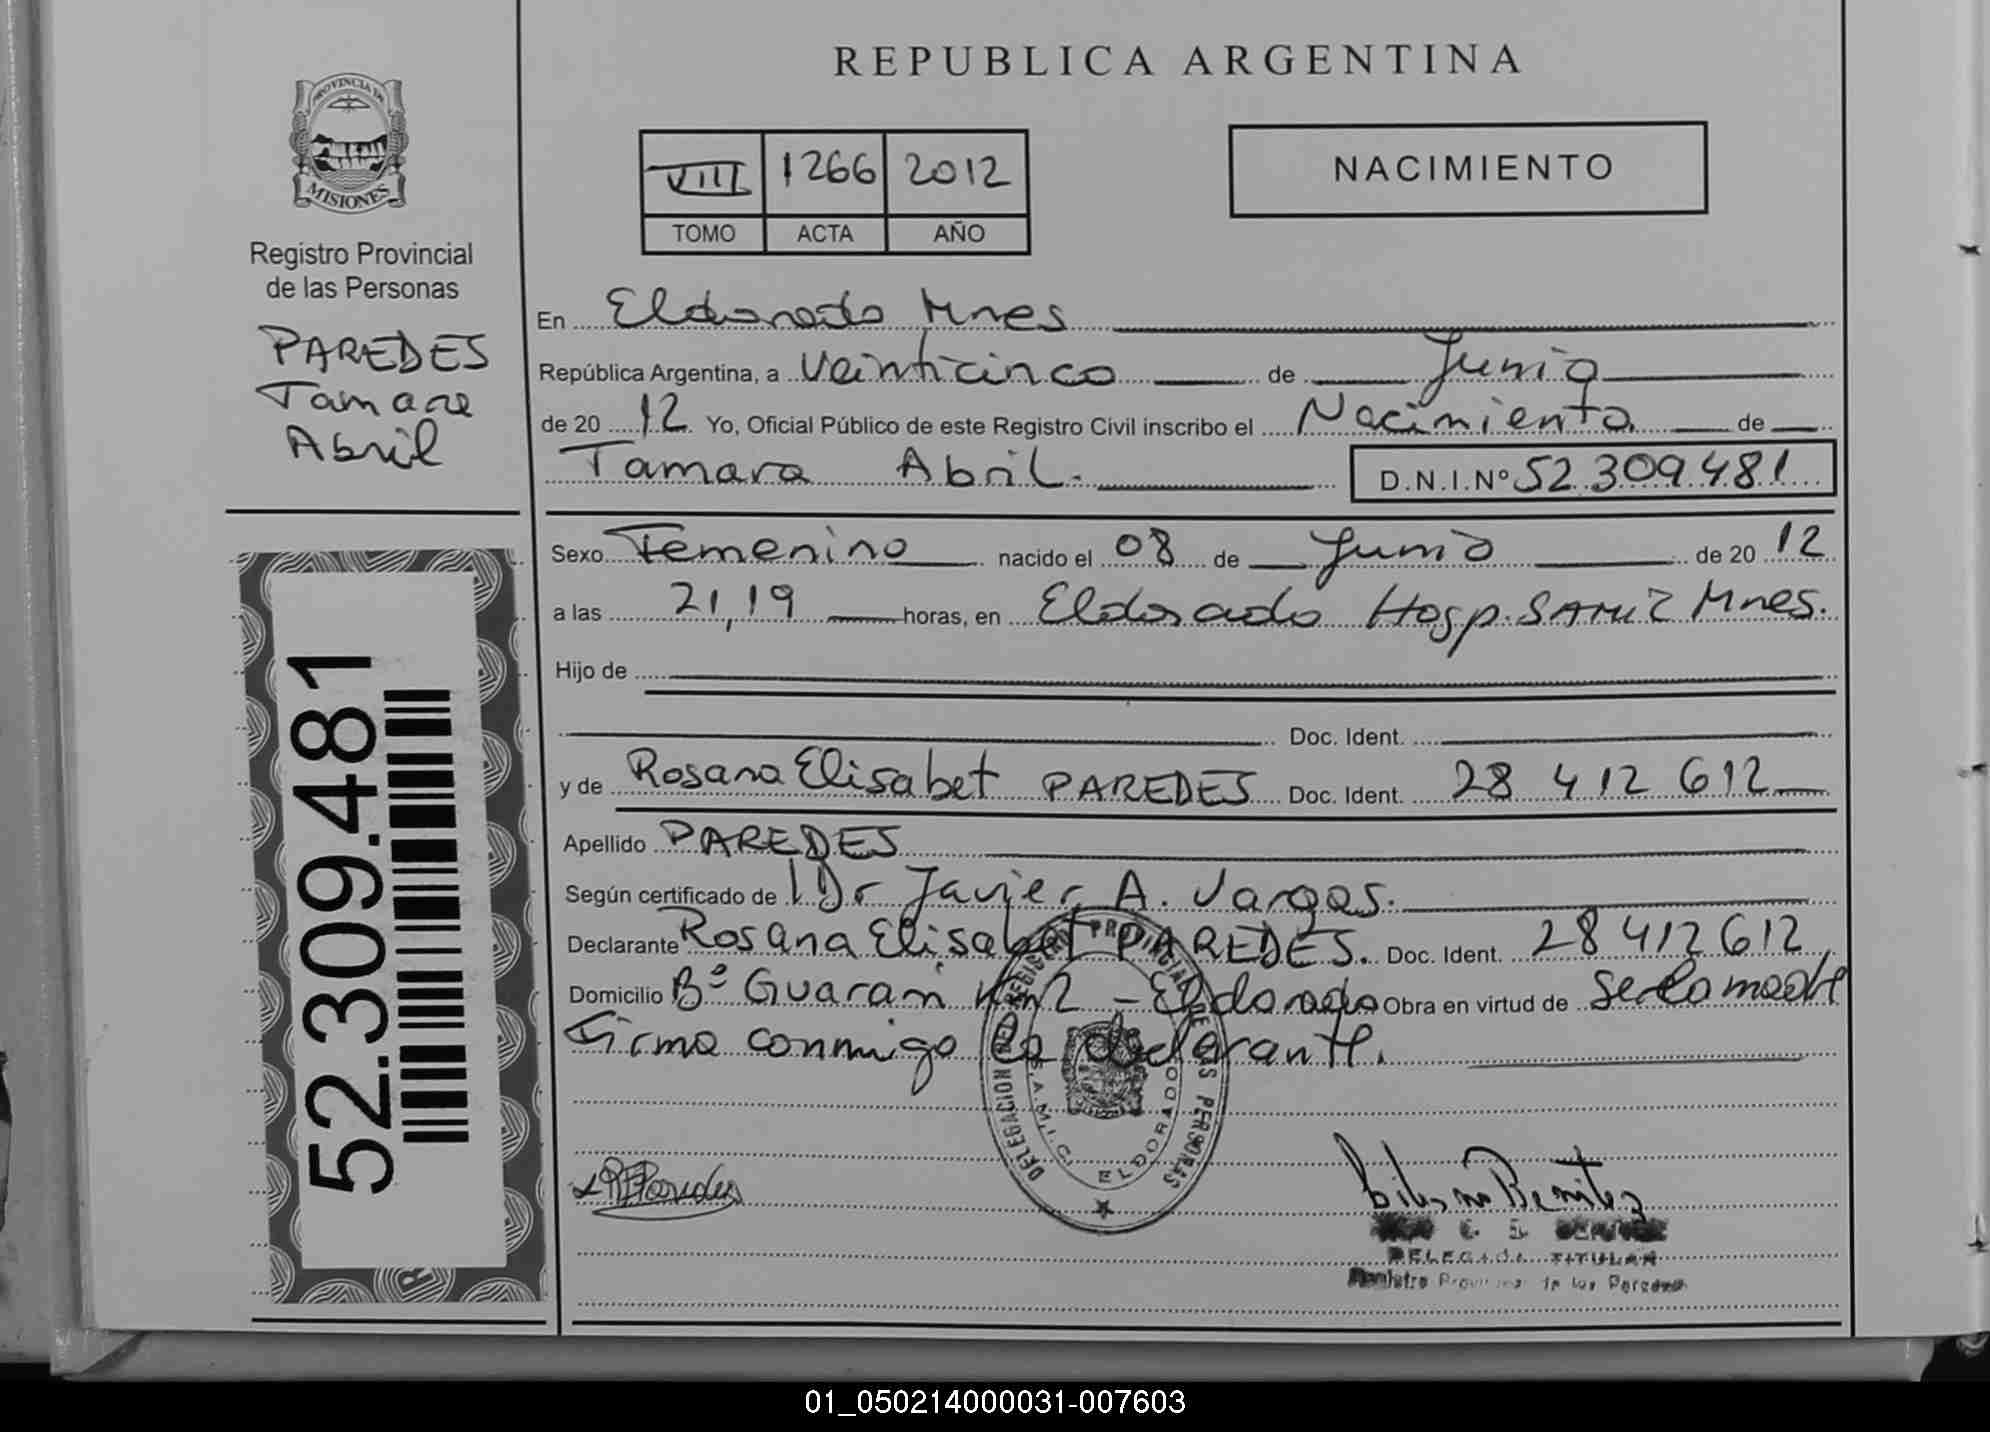 REPUBLICA ARGENTINA
PROVINCIA DE
MISIONES
Registro Provincial
de las Personas
PAREDES
Tamara
Abril
52.309.481
VIII 1266 2012
TOMO ACTA AÑO
NACIMIENTO
En Eldorado Mnes
República Argentina, a veinticinco de Junio
de 20 12 Yo, Oficial Público de este Registro Civil inscribo el Nacimiento de
Tamara Abril. D.N.I.Nº 52.309.481
Sexo Femenino nacido el 08 de Junio de 20 12
a las 21,19 horas, en Eldorado Hosp. SAMIC Mnes.
Hijo de
Doc. Ident.
y de Rosana Elisabet PAREDES Doc. Ident. 28 412 612
Apellido PAREDES
Según certificado de Dr Javier A. Vargas.
Declarante Rosana Elisabet PAREDES. Doc. Ident. 28 412 612
Domicilio Bº Guarani Km 2 - Eldorado Obra en virtud de ser la madre
Firma conmigo la declarante.
DELEGACION DEL REGISTRO PROVINCIAL DE LAS PERSONAS
S.A.M.I.C. ELDORADO
R E Paredes
Benitez
DELEGADA TITULAR
Registro Provincial de las Personas
01_050214000031-007603